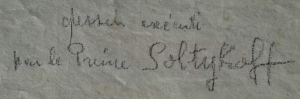 dessin exécuté
par le Prince Soltykoff